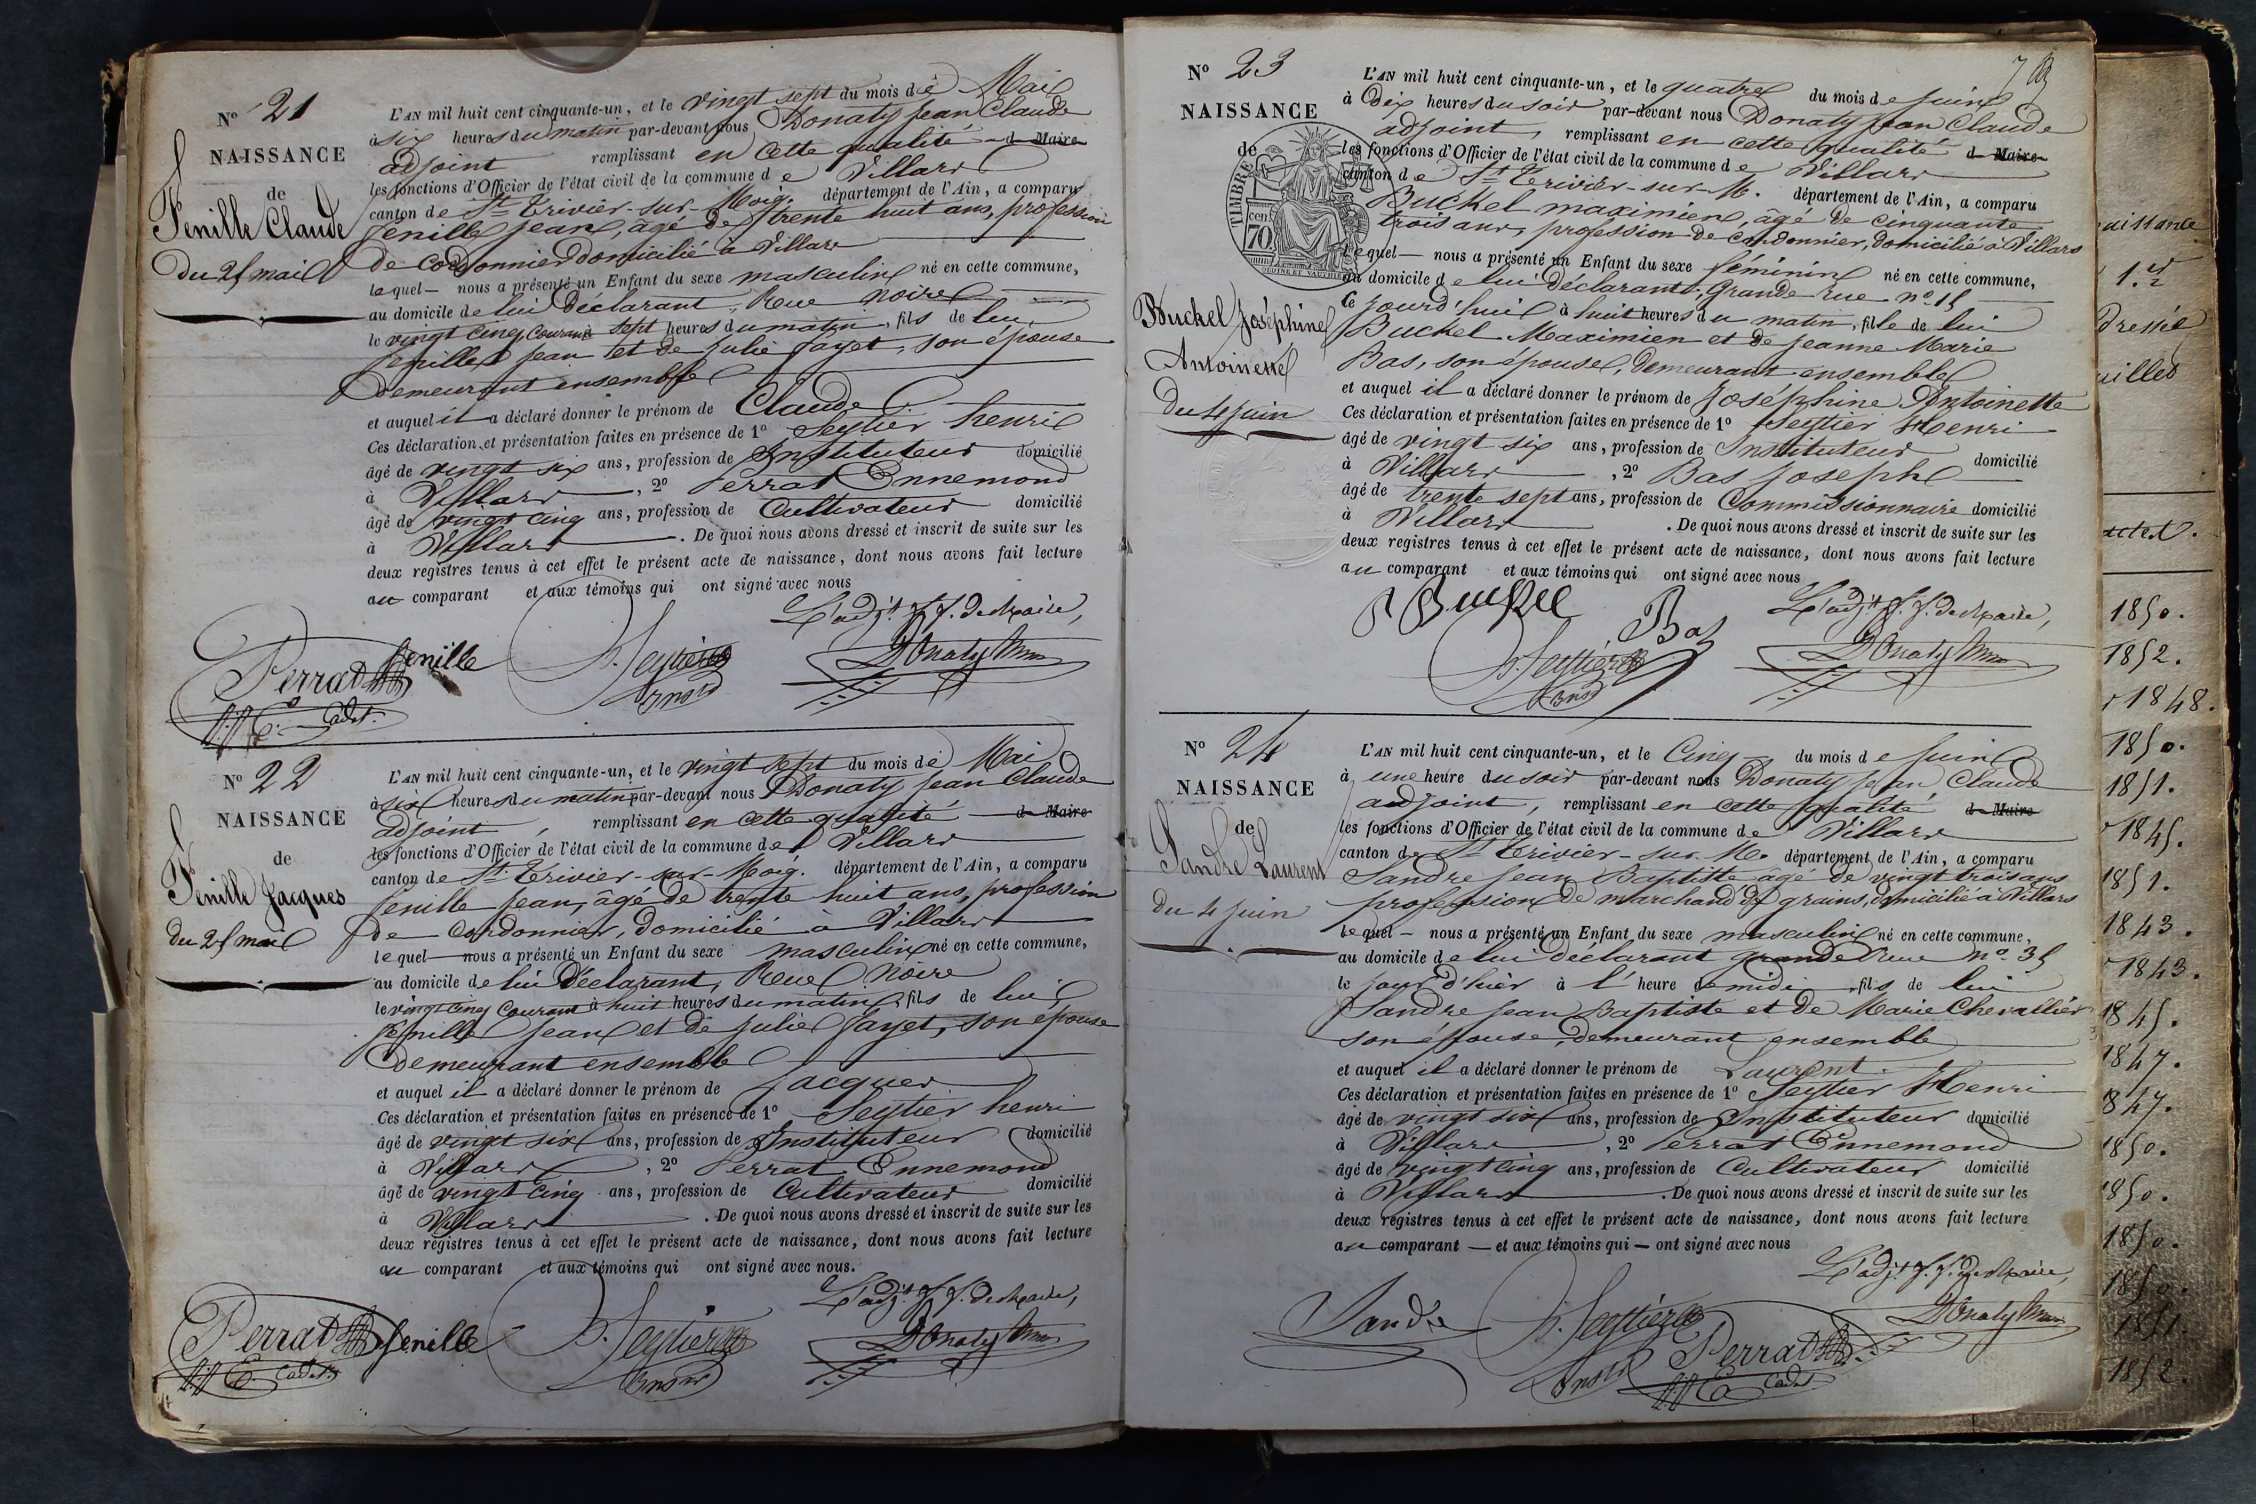 N° 21
NAISSANCE
de
Fenille Claude
du 25 mai
L'AN mil huit cent cinquante-un, et le vingt sept du mois de Mai
à six heures du matin par-devant nous Donaty Jean Claude
adjoint remplissant en cette qualité d Maire
les fonctions d'Officier de l'état civil de la commune de Villars
canton de St Trivier-sur-Moig. département de l'Ain, a comparu
fenille Jean, âgé de trente huit ans, profession
de cordonnier domicilié à Villars
lequel nous a présenté un Enfant du sexe masculin né en cette commune,
au domicile de lui Déclarant, Rue Noire
le vingt cinq courant à sept heures du matin, fils de lui
fenille Jean et de Julie fayet, son épouse
Demeurant ensemble
et auquel il a déclaré donner le prénom de Claude
Ces déclaration et présentation faites en présence de 1° Seytier henri
âgé de vingt six ans, profession de Instituteur domicilié
à Villars, 2° Perrat Ennemond
âgé de vingt cinq ans, profession de Cultivateur domicilié
à Villars. De quoi nous avons dressé et inscrit de suite sur les
deux registres tenus à cet effet le présent acte de naissance, dont nous avons fait lecture
au comparant et aux témoins qui ont signé avec nous
L'adjt f. f. de Maire,
Perrat fenille h. Seytier Donaty
Cadet
N° 22
NAISSANCE
de
Fenille Jacques
du 25 mai
L'AN mil huit cent cinquante-un, et le vingt sept du mois de Mai
à six heures du matin par-devant nous Donaty Jean Claude
adjoint, remplissant en cette qualité d Maire
les fonctions d'Officier de l'état civil de la commune de Villars
canton de St Trivier-sur-Moig. département de l'Ain, a comparu
fenille Jean, âgé de trente huit ans, profession
de cordonnier, domicilié à Villars
lequel nous a présenté un Enfant du sexe masculin né en cette commune,
au domicile de lui Déclarant, Rue Noire
le vingt cinq courant à huit heures du matin, fils de lui
fenille Jean et de Julie fayet, son épouse
Demeurant ensemble
et auquel il a déclaré donner le prénom de Jacques
Ces déclaration et présentation faites en présence de 1° Seytier henri
âgé de vingt six ans, profession de Instituteur domicilié
à Villars, 2° Perrat Ennemond
âgé de vingt cinq ans, profession de Cultivateur domicilié
à Villars. De quoi nous avons dressé et inscrit de suite sur les
deux registres tenus à cet effet le présent acte de naissance, dont nous avons fait lecture
au comparant et aux témoins qui ont signé avec nous.
L'adjt f. f. de Maire,
Perrat fenille h. Seytier Donaty
Cadet
7
N° 23
NAISSANCE
de
TIMBRE
70 cen
Buckel Joséphine
Antoinette
Du 4 Juin
L'AN mil huit cent cinquante-un, et le quatre du mois de Juin
à Dix heures du soir par-devant nous Donaty Jean Claude
adjoint, remplissant en cette qualité d Maire
les fonctions d'Officier de l'état civil de la commune de Villars
canton de St Trivier-sur-M. département de l'Ain, a comparu
Buckel maximien, âgé de cinquante
trois ans, profession de cordonnier, domicilié à Villars
lequel nous a présenté un Enfant du sexe féminin né en cette commune,
au domicile de lui déclarant, Grande rue n° 15
ce jourd'hui à huit heures du matin, fille de lui
Buckel Maximien et de Jeanne Marie
Bas, son épouse, Demeurant ensemble
et auquel il a déclaré donner le prénom de Joséphine Antoinette
Ces déclaration et présentation faites en présence de 1° Seytier Henri
âgé de vingt six ans, profession de Instituteur domicilié
à Villars, 2° Bas Joseph
âgé de trente sept ans, profession de Commissionnaire domicilié
à Villars. De quoi nous avons dressé et inscrit de suite sur les
deux registres tenus à cet effet le présent acte de naissance, dont nous avons fait lecture
au comparant et aux témoins qui ont signé avec nous
L'adjt f. f. de Maire,
Buckel Bas
h. Seytier Donaty
N° 24
NAISSANCE
de
Sandre Laurent
du 4 Juin
L'AN mil huit cent cinquante-un, et le Cinq du mois de Juin
à une heure du soir par-devant nous Donaty Jean Claude
adjoint, remplissant en cette qualité d Maire
les fonctions d'Officier de l'état civil de la commune de Villars
canton de St Trivier-sur-M. département de l'Ain, a comparu
Sandre Jean Baptiste âgé de vingt trois ans
profession de marchand de grains, domicilié à Villars
lequel nous a présenté un Enfant du sexe masculin né en cette commune,
au domicile de lui Déclarant grande rue n° 35
le jour d'hier à l'heure de midi, fils de lui
Sandre Jean Baptiste et de Marie Chevallier
son épouse, demeurant ensemble
et auquel il a déclaré donner le prénom de Laurent
Ces déclaration et présentation faites en présence de 1° Seytier Henri
âgé de vingt six ans, profession de Instituteur domicilié
à Villars, 2° Perrat Ennemond
âgé de vingt cinq ans, profession de Cultivateur domicilié
à Villars. De quoi nous avons dressé et inscrit de suite sur les
deux registres tenus à cet effet le présent acte de naissance, dont nous avons fait lecture
au comparant et aux témoins qui ont signé avec nous
L'adjt f. f. de Maire,
Sandre h. Seytier Donaty
Perrat
Cadet
1850.
1852.
1848.
1850.
1851.
1845.
1851.
1843.
1843.
1845.
1847.
1847.
1850.
1850.
1850.
1850.
1851.
1852.